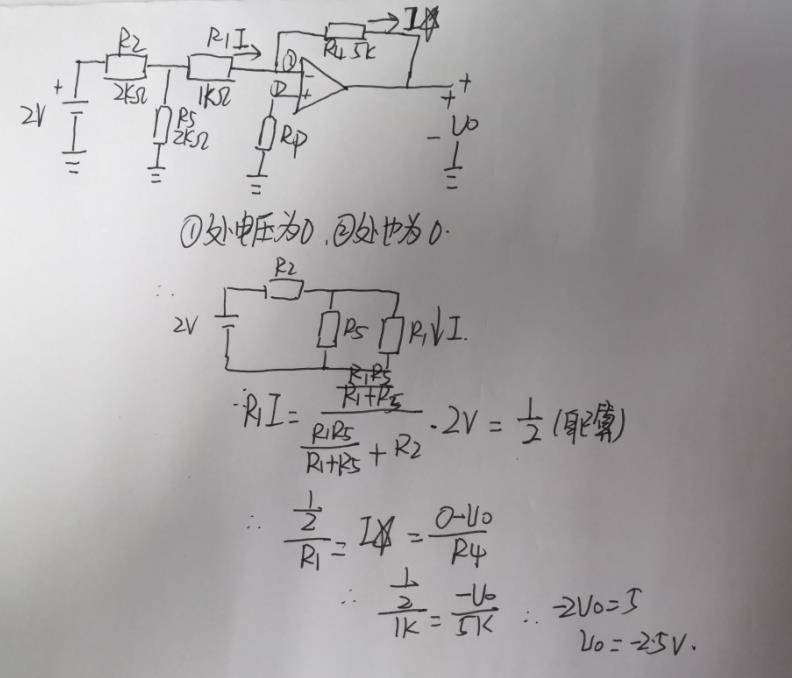 R2 R1 I R4 5K I
2V + 2KΩ 1KΩ ① - ② +
R5 2KΩ Rp + + - U0
①处电压为0,②处也为0.
∴ R2
2V R5 R1 ↓ I.
∴ R1I = (R1R5/(R1+R5))/(R1R5/(R1+R5) + R2) · 2V = 1/2 (自己算)
∴ (1/2)/R1 = I = (0-U0)/R4
∴ (1/2)/1K = -U0/5K ∴ -2U0=5
U0=-2.5V.